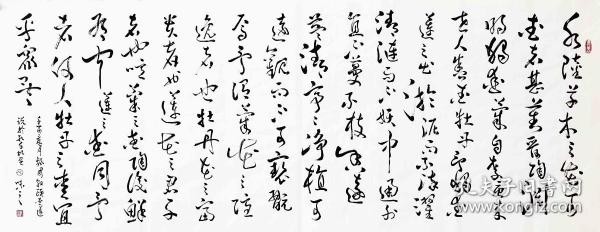 水陸草木之花可
愛者甚蕃晉陶淵
明獨愛菊自李唐來
世人甚愛牡丹予獨愛
蓮之出淤泥而不染濯
清漣而不妖中通外
直不蔓不枝香遠
益清亭亭淨植可
遠觀而不可褻翫
焉予謂菊花之隱
逸者也牡丹花之富
貴者也蓮花之君子
者也噫菊之愛陶後鮮
有聞蓮之愛同予
者何人牡丹之愛宜
乎眾矣